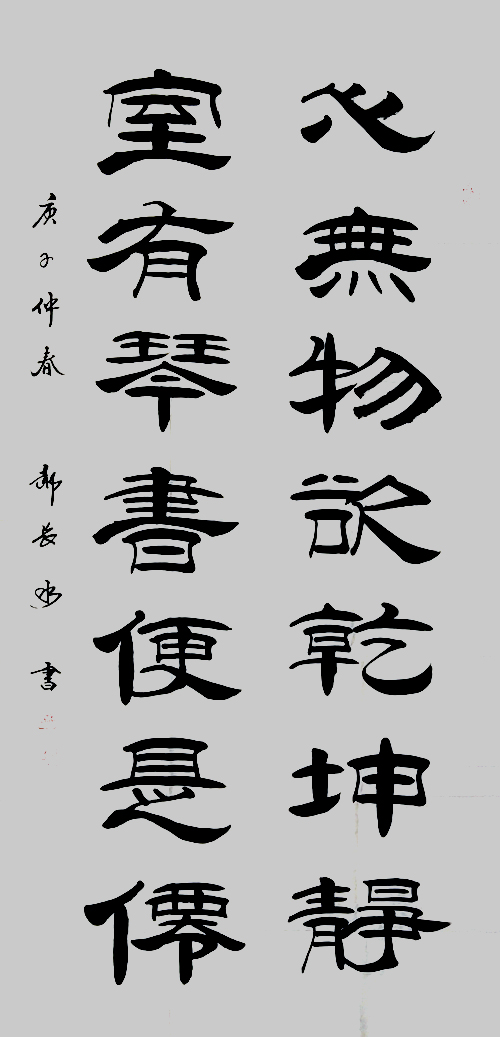 心無物欲乾坤靜
室有琴書便是僊
庚子仲春 長 書